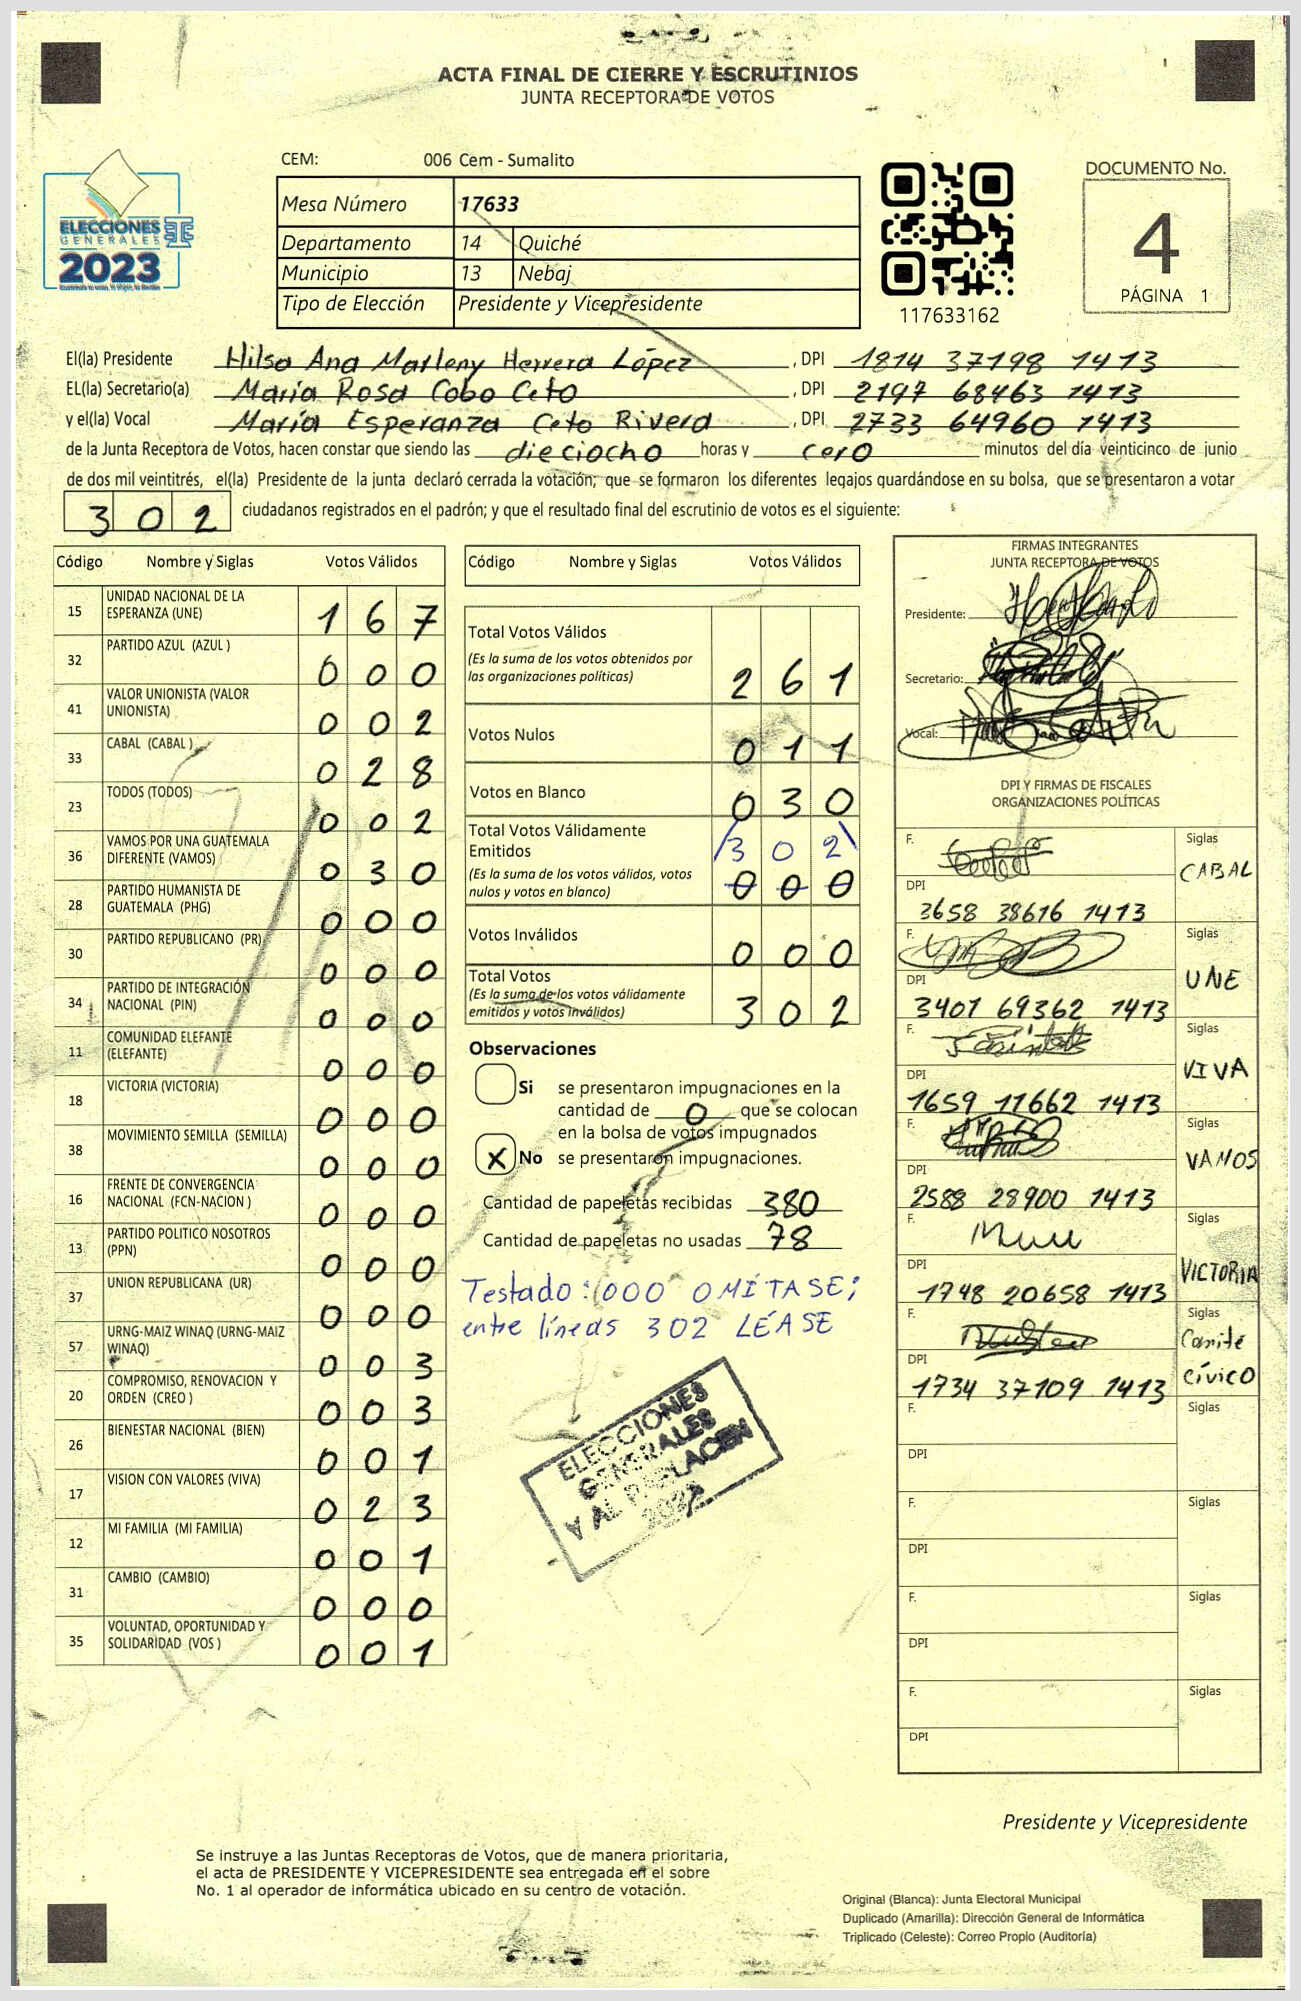 ACTA FINAL DE CIERRE Y ESCRUTINIOS
JUNTA RECEPTORA DE VOTOS
CEM: 006 Cem - Sumalito
ELECCIONES
GENERALES
2023
Mesa Número 17633
Departamento 14 Quiché
Municipio 13 Nebaj
Tipo de Elección Presidente y Vicepresidente
117633162
DOCUMENTO No.
4
PÁGINA 1
El(la) Presidente Hilsa Ana Marleny Herrera López, DPI 1814 37198 1413
EL(la) Secretario(a) María Rosa Cobo Ceto, DPI 2197 68463 1413
y el(la) Vocal María Esperanza Ceto Rivera, DPI 2733 64960 1413
de la Junta Receptora de Votos, hacen constar que siendo las dieciocho horas y cero minutos del día veinticinco de junio
de dos mil veintitrés, el(la) Presidente de la junta declaró cerrada la votación; que se formaron los diferentes legajos quardándose en su bolsa, que se presentaron a votar
302 ciudadanos registrados en el padrón; y que el resultado final del escrutinio de votos es el siguiente:
Código Nombre y Siglas Votos Válidos
15 UNIDAD NACIONAL DE LA ESPERANZA (UNE) 167
32 PARTIDO AZUL (AZUL ) 000
41 VALOR UNIONISTA (VALOR UNIONISTA) 002
33 CABAL (CABAL ) 028
23 TODOS (TODOS) 002
36 VAMOS POR UNA GUATEMALA DIFERENTE (VAMOS) 030
28 PARTIDO HUMANISTA DE GUATEMALA (PHG) 000
30 PARTIDO REPUBLICANO (PR) 000
34 PARTIDO DE INTEGRACIÓN NACIONAL (PIN) 000
11 COMUNIDAD ELEFANTE (ELEFANTE) 000
18 VICTORIA (VICTORIA) 000
38 MOVIMIENTO SEMILLA (SEMILLA) 000
16 FRENTE DE CONVERGENCIA NACIONAL (FCN-NACION ) 000
13 PARTIDO POLITICO NOSOTROS (PPN) 000
37 UNION REPUBLICANA (UR) 000
57 URNG-MAIZ WINAQ (URNG-MAIZ WINAQ) 003
20 COMPROMISO, RENOVACION Y ORDEN (CREO ) 003
26 BIENESTAR NACIONAL (BIEN) 001
17 VISION CON VALORES (VIVA) 023
12 MI FAMILIA (MI FAMILIA) 001
31 CAMBIO (CAMBIO) 000
35 VOLUNTAD, OPORTUNIDAD Y SOLIDARIDAD (VOS ) 001
Código Nombre y Siglas Votos Válidos
Total Votos Válidos 261
(Es la suma de los votos obtenidos por
las organizaciones políticas)
Votos Nulos 011
Votos en Blanco 030
Total Votos Válidamente Emitidos 302
(Es la suma de los votos válidos, votos
nulos y votos en blanco) 000
Votos Inválidos 000
Total Votos 302
(Es la suma de los votos válidamente
emitidos y votos inválidos)
Observaciones
Si se presentaron impugnaciones en la
cantidad de 0 que se colocan
en la bolsa de votos impugnados
X No se presentaron impugnaciones.
Cantidad de papeletas recibidas 380
Cantidad de papeletas no usadas 78
Testado: 000 OMÍTASE;
entre líneas 302 LÉASE
ELECCIONES
GENERALES
Y AL PARLACEN
2023
FIRMAS INTEGRANTES
JUNTA RECEPTORA DE VOTOS
Presidente:
Secretario:
Vocal:
DPI Y FIRMAS DE FISCALES
ORGANIZACIONES POLÍTICAS
F. Siglas CABAL
DPI 3658 38616 1413
F. Siglas UNE
DPI 3401 69362 1413
F. Siglas VIVA
DPI 1659 11662 1413
F. Siglas VAMOS
DPI 2588 28900 1413
F. Siglas VICTORIA
DPI 1748 20658 1413
F. Siglas Comité Cívico
DPI 1734 37109 1413
F. Siglas
DPI
F. Siglas
DPI
F. Siglas
DPI
F. Siglas
DPI
Presidente y Vicepresidente
Se instruye a las Juntas Receptoras de Votos, que de manera prioritaria,
el acta de PRESIDENTE Y VICEPRESIDENTE sea entregada en el sobre
No. 1 al operador de informática ubicado en su centro de votación.
Original (Blanca): Junta Electoral Municipal
Duplicado (Amarilla): Dirección General de Informática
Triplicado (Celeste): Correo Propio (Auditoría)